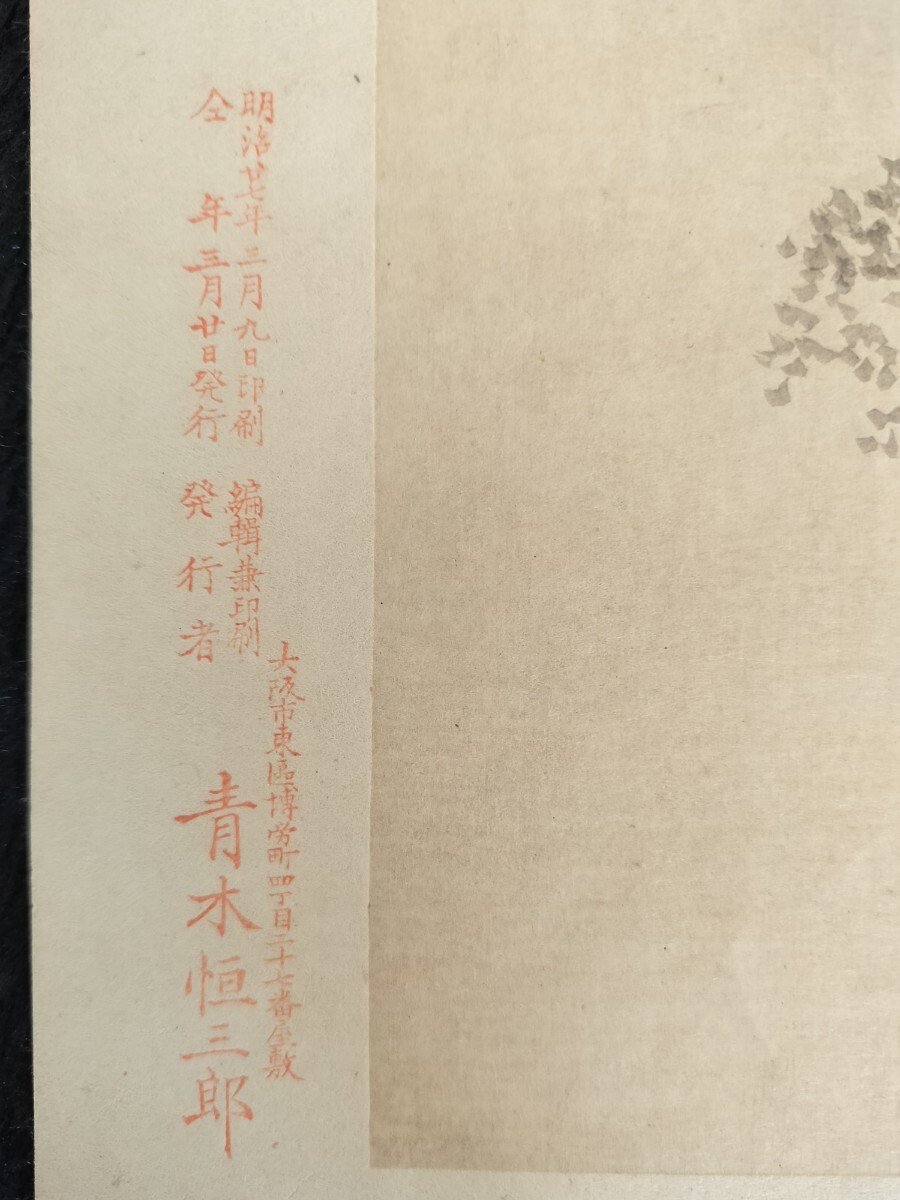 明治廿七年三月九日印刷
仝年三月廿日発行
編輯兼印刷
発行者
大阪市東區博労町四丁目二十七番屋敷
青木恒三郎